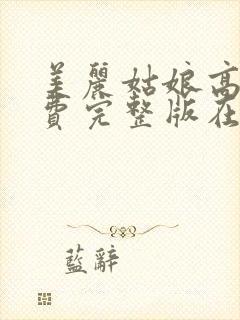 美麗姑娘高
費完整版在
藍辭